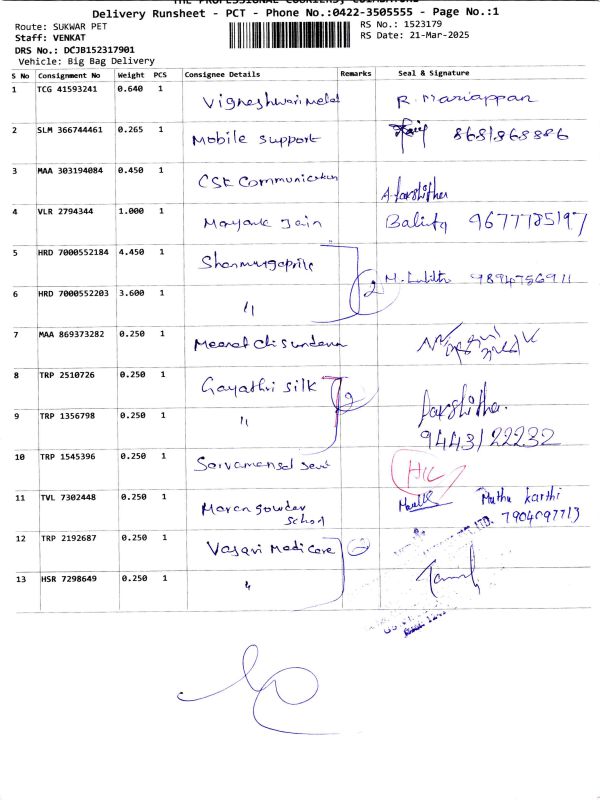 THE PROFESSIONAL COURIERS, COIMBATORE
Delivery Runsheet - PCT - Phone No.:0422-3505555 - Page No.:1
Route: SUKWAR PET
Staff: VENKAT
DRS No.: DCJB152317901
Vehicle: Big Bag Delivery
RS No.: 1523179
RS Date: 21-Mar-2025
S No Consignment No Weight PCS Consignee Details Remarks Seal & Signature
1 TCG 41593241 0.640 1 R. Mariappan
2 SLM 366744461 0.265 1 Mobile support 8681868886
3 MAA 303194084 0.450 1 CSK Communication
4 VLR 2794344 1.000 1 Mayank Jain 9677785197
5 HRD 7000552184 4.450 1
2 9894756911
6 HRD 7000552203 3.600 1 "
7 MAA 869373282 0.250 1
8 TRP 2510726 0.250 1 Gayathri silk 2
9 TRP 1356798 0.250 1 " 9443122232
10 TRP 1545396 0.250 1
11 TVL 7302448 0.250 1 Maran gowder Muthu Karthi
School 7904097713
12 TRP 2192687 0.250 1 Vasavi Medicare 2
13 HSR 7298649 0.250 1 "